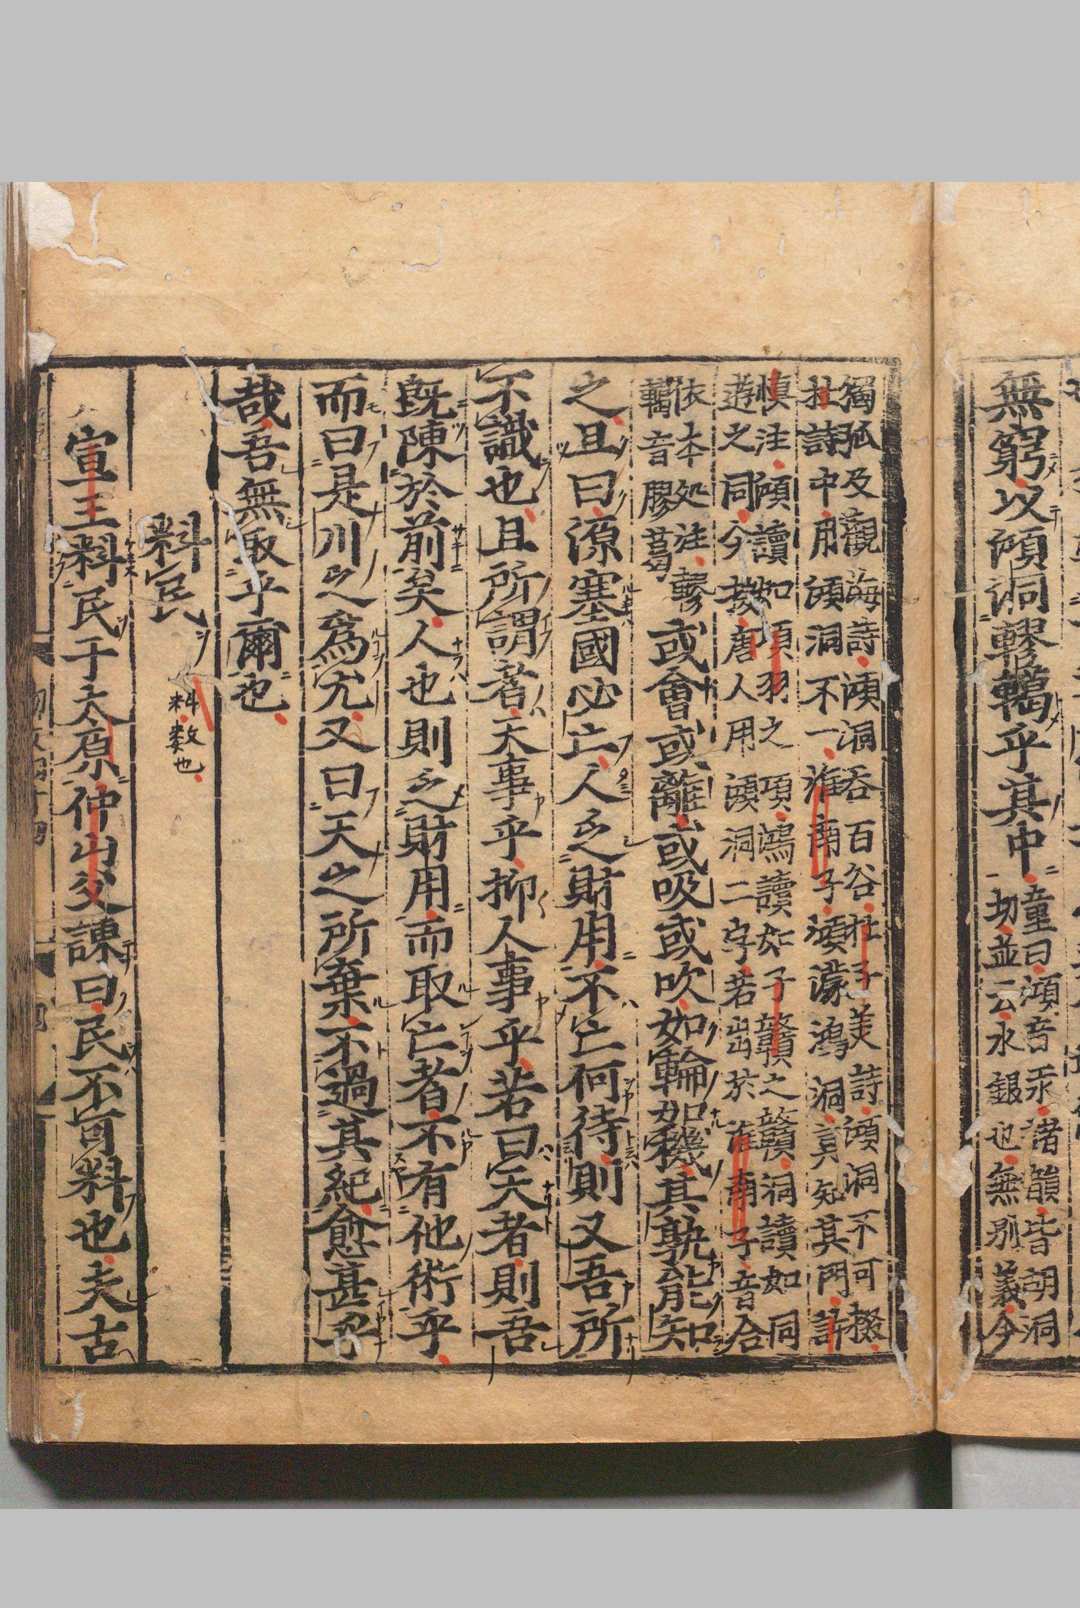 無窮以澒洞轇轕乎其中
童曰澒音汞諸韻皆胡洞
切並云水銀也無別義今
獨孤及觀海詩澒洞吞百谷杜子美詩澒洞不可掇
杜詩中用澒洞不一淮南子澒濛鴻洞莫知其門許
慎注澒讀如項羽之項鴻讀如子贛之贛洞讀如同
遊之同今考唐人用澒洞二字若出於淮南子音合
依本処注轇
轕音膠葛
或會或離或吸或吹如輪如機其孰能知
之且曰源塞國必亡人乏財用不亡何待則又吾所
不識也且所謂者天事乎抑人事乎若曰天者則吾
既陳於前矣人也則乏財用而取亡者不有他術乎
而曰是川之爲尤又曰天之所棄不過其紀愈甚乎
哉吾無取乎爾也
料民
料數也
宣王料民于太原仲山父諫曰民不可料也夫古